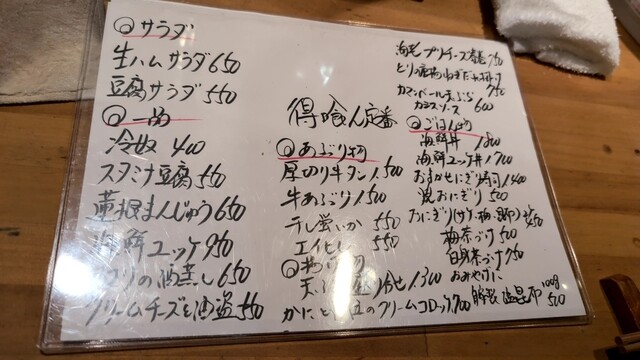 サラダ
生ハムサラダ 650
豆腐サラダ 550
一品
冷奴 400
スタミナ豆腐 550
蓮根まんじゅう 650
海鮮ユッケ 950
の酒蒸し 650
クリームチーズと酒盗 550
得喰ん定番
あぶり物
厚切り牛タン 1.500
牛あぶり 1.500
テレ蛍いか 550
エイヒレ 550
揚げ物
天ぷら盛り合せ 1.300
かにと のクリームコロッケ 700
海老プリチーズ春巻 750
カマンベール天ぷら 750
カシスソース 600
ごはん物
海鮮丼 1.800
海鮮ユッケ丼 1.700
おまかせにぎり寿司 1.400
焼おにぎり 500
おにぎり(サケ・梅・ ) 450
梅茶づけ 500
白身茶づけ 750
おみやげに
塩昆布 100g 500